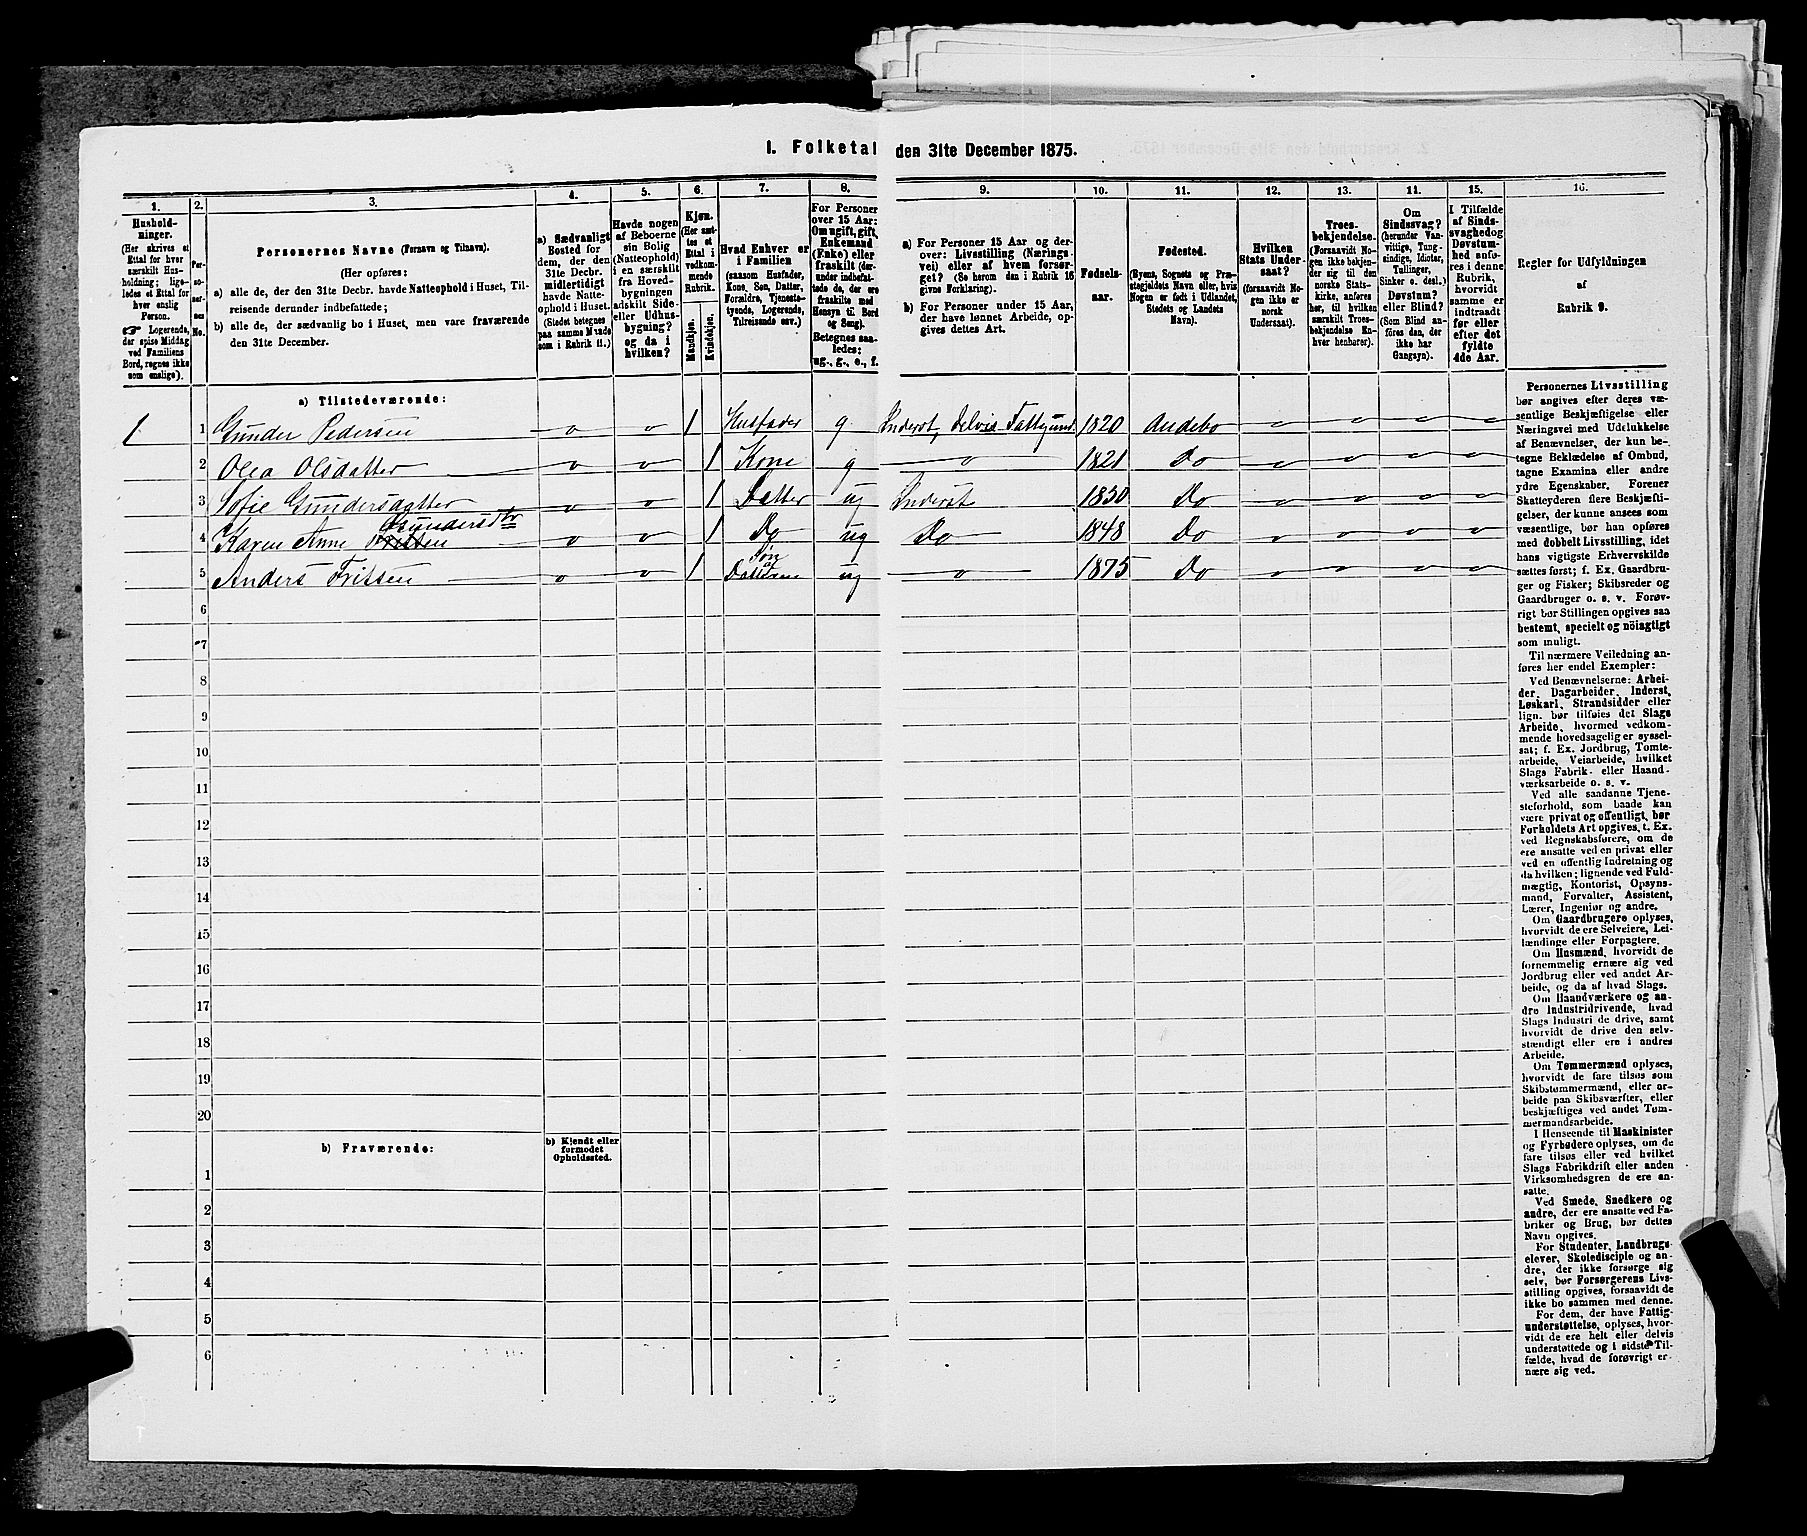 1. Folketal den 31te December 1875.
1.
Hushold-
ninger.
(Her skrives et
Ettal for hver
særskilt Hus-
holdning; lige-
ledes et Ettal for
hver enslig
Person.
☞ Logerende,
der spise Middag
ved Familiens
Bord, regnes ikke
som enslige).
2.
Per-
so-
ner-
nes
No.
3.
Personernes Navne (Fornavn og Tilnavn).
(Her opføres:
a) alle de, der den 31te Decbr. havde Natteophold i Huset, Til-
reisende derunder indbefattede;
b) alle de, der sædvanlig bo i Huset, men vare fraværende
den 31te December.
4.
a) Sædvanligt
Bosted for
dem, der den
31te Decbr.
midlertidigt
havde Natte-
ophold i Huset.
(Stedet betegnes
paa samme Maade
som i Rubrik 11.)
5.
Havde nogen
af Beboerne
sin Bolig
(Natteophold)
i en særskilt
fra Hoved-
bygningen
adskilt Side-
eller Udhus-
bygning?
og da i
hvilken?
6.
Kjøn.
(Her sæt-
tes et
Ettal i
vedkom-
mende
Rubrik.
Mandkjøn.
Kvindekjøn.
7.
Hvad Enhver er
i Familien
(saasom Husfader,
Kone, Søn, Datter,
Forældre, Tjeneste-
tyende, Logerende,
Tilreisende osv.)
8.
For Personer
over 15 Aar:
Om ugift, gift,
Enkemand
(Enke) eller
fraskilt (der-
under indbefat-
tede de, der ere
fraskilte med
Hensyn til Bord
og Seng).
Betegnes saa-
ledes:
ug., g., e., f.
9.
a) For Personer 15 Aar og der-
over: Livsstilling (Nærings-
vei) eller af hvem forsør-
get? (Se herom den i Rubrik 16
givne Forklaring).
b) For Personer under 15 Aar,
der have lønnet Arbeide, op-
gives dettes Art.
10.
Fødsels-
aar.
11.
Fødested.
(Byens, Sognets og Præ-
stegjeldets Navn eller, hvis
Nogen er født i Udlandet,
Stedets og Landets
Navn).
12.
Hvilken
Stats Under-
saat?
(forsaavidt No-
gen ikke er
norsk
Undersaat).
13.
Troes-
bekjendelse.
(Forsaavidt No-
gen ikke bekjen-
der sig til den
norske Stats-
kirke, anføres
her, til hvilken
særskilt Troes-
bekjendelse En-
hver henhører).
14.
Om
Sindssvag?
(herunder Van-
vittige, Tung-
sindige, Idioter,
Tullinger,
Sinker o. desl.)
Døvstum?
eller Blind?
(Som Blind an-
føres den, der
ikke har
Gangsyn).
15.
I Tilfælde
af Sinds-
svaghed og
Døvstum-
hed anfø-
res i denne
Rubrik,
hvorvidt
samme er
indtraadt
før eller
efter det
fyldte
4de Aar.
16.
Regler for Udfyldningen
af
Rubrik 9.
a) Tilstedeværende:
1 1 Gunder Pedersen 1 Husfader g Inderst, delvis Fattigund. 1820 Andebo
2 Olea Olsdatter 1 Kone g 1821 Do
3 Sofie Gundersdatter 1 Datter ug Inderst 1850 Do
4 Karen Anne Fritsen Gundersdtr 1 Do ug Do 1848 Do
5 Anders Fritsen 1 Søn af Datteren ug 1875 Do
6
7
8
9
10
11
12
13
14
15
16
17
18
19
20
b) Fraværende:
b) Kjendt eller
formodet
Opholdssted.
1
2
3
4
5
6
Personernes Livsstilling
bør angives efter deres væ-
sentlige Beskjæftigelse eller
Næringsvei med Udelukkelse
af Benævnelser, der kun be-
tegne Beklædelse af Ombud,
tagne Examina eller andre
ydre Egenskaber. Forener
Skatteyderen flere Beskjæfti-
gelser, der kunne ansees som
væsentlige, bør han opføres
med dobbelt Livsstilling, idet
hans vigtigste Erhvervskilde
sættes først; f. Ex. Gaardbru-
ger og Fisker; Skibsreder og
Gaardbruger o. s. v. Forøv-
rigt bør Stillingen opgives saa
bestemt, specielt og nøiagtigt
som muligt.
Til nærmere Veiledning an-
føres her endel Exempler:
Ved Benævnelserne: Arbei-
der, Dagarbeider, Inderst,
Løskarl, Strandsidder eller
lign. bør tilføies det Slags
Arbeide, hvormed vedkom-
mende hovedsagelig er syssel-
sat; f. Ex. Jordbrug, Tomte-
arbeide, Veiarbeide, hvilket
Slags Fabrik- eller Haand-
værksarbeide o. s. v.
Ved alle saadanne Tjene-
steforhold, som baade kan
være privat og offentligt, bør
Forholdets Art opgives, t. Ex.
ved Regnskabsførere, om de
ere ansatte ved en privat eller
ved en offentlig Indretning og
da hvilken; lignende ved Fuld-
mægtig, Kontorist, Opsyns-
mand, Forvalter, Assistent,
Lærer, Ingeniør og andre.
Om Gaardbrugere oplyses,
hvorvidt de ere Selveiere, Lei-
lændinge eller Forpagtere.
Om Husmænd, hvorvidt de
fornemmelig ernære sig ved
Jordbrug eller ved andet Ar-
beide, og da af hvad Slags.
Om Haandværkere og an-
dre Industridrivende, hvad
Slags Industri de drive, samt
hvorvidt de drive den selv-
stændigt eller ere i andres
Arbeide.
Om Tømmermænd oplyses,
hvorvidt de fare tilsøs som
Skibstømmermænd, eller ar-
beide paa Skibsværfter, eller
beskjæftiges ved andet Tøm-
mermandsarbeide.
I Henseende til Maskinister
og Fyrbødere oplyses, om de
fare tilsøs eller ved hvilket
Slags Fabrikdrift eller anden
Virksomhedsgren de ere an-
satte.
Ved Smede, Snedkere og
andre, der ere ansatte ved Fa-
briker og Brug, bør dettes
Navn opgives.
For Studenter, Landbrugs-
elever, Skoledisciple og an-
dre, der ikke forsørge sig
selv, bør Forsørgerens Livs-
stilling opgives, forsaavidt de
ikke bo sammen med denne.
For dem, der have Fattig-
understøttelse, oplyses, hvor-
vidt de ere helt eller delvis
understøttede og i sidste Til-
fælde, hvad de forøvrigt er-
nære sig ved.